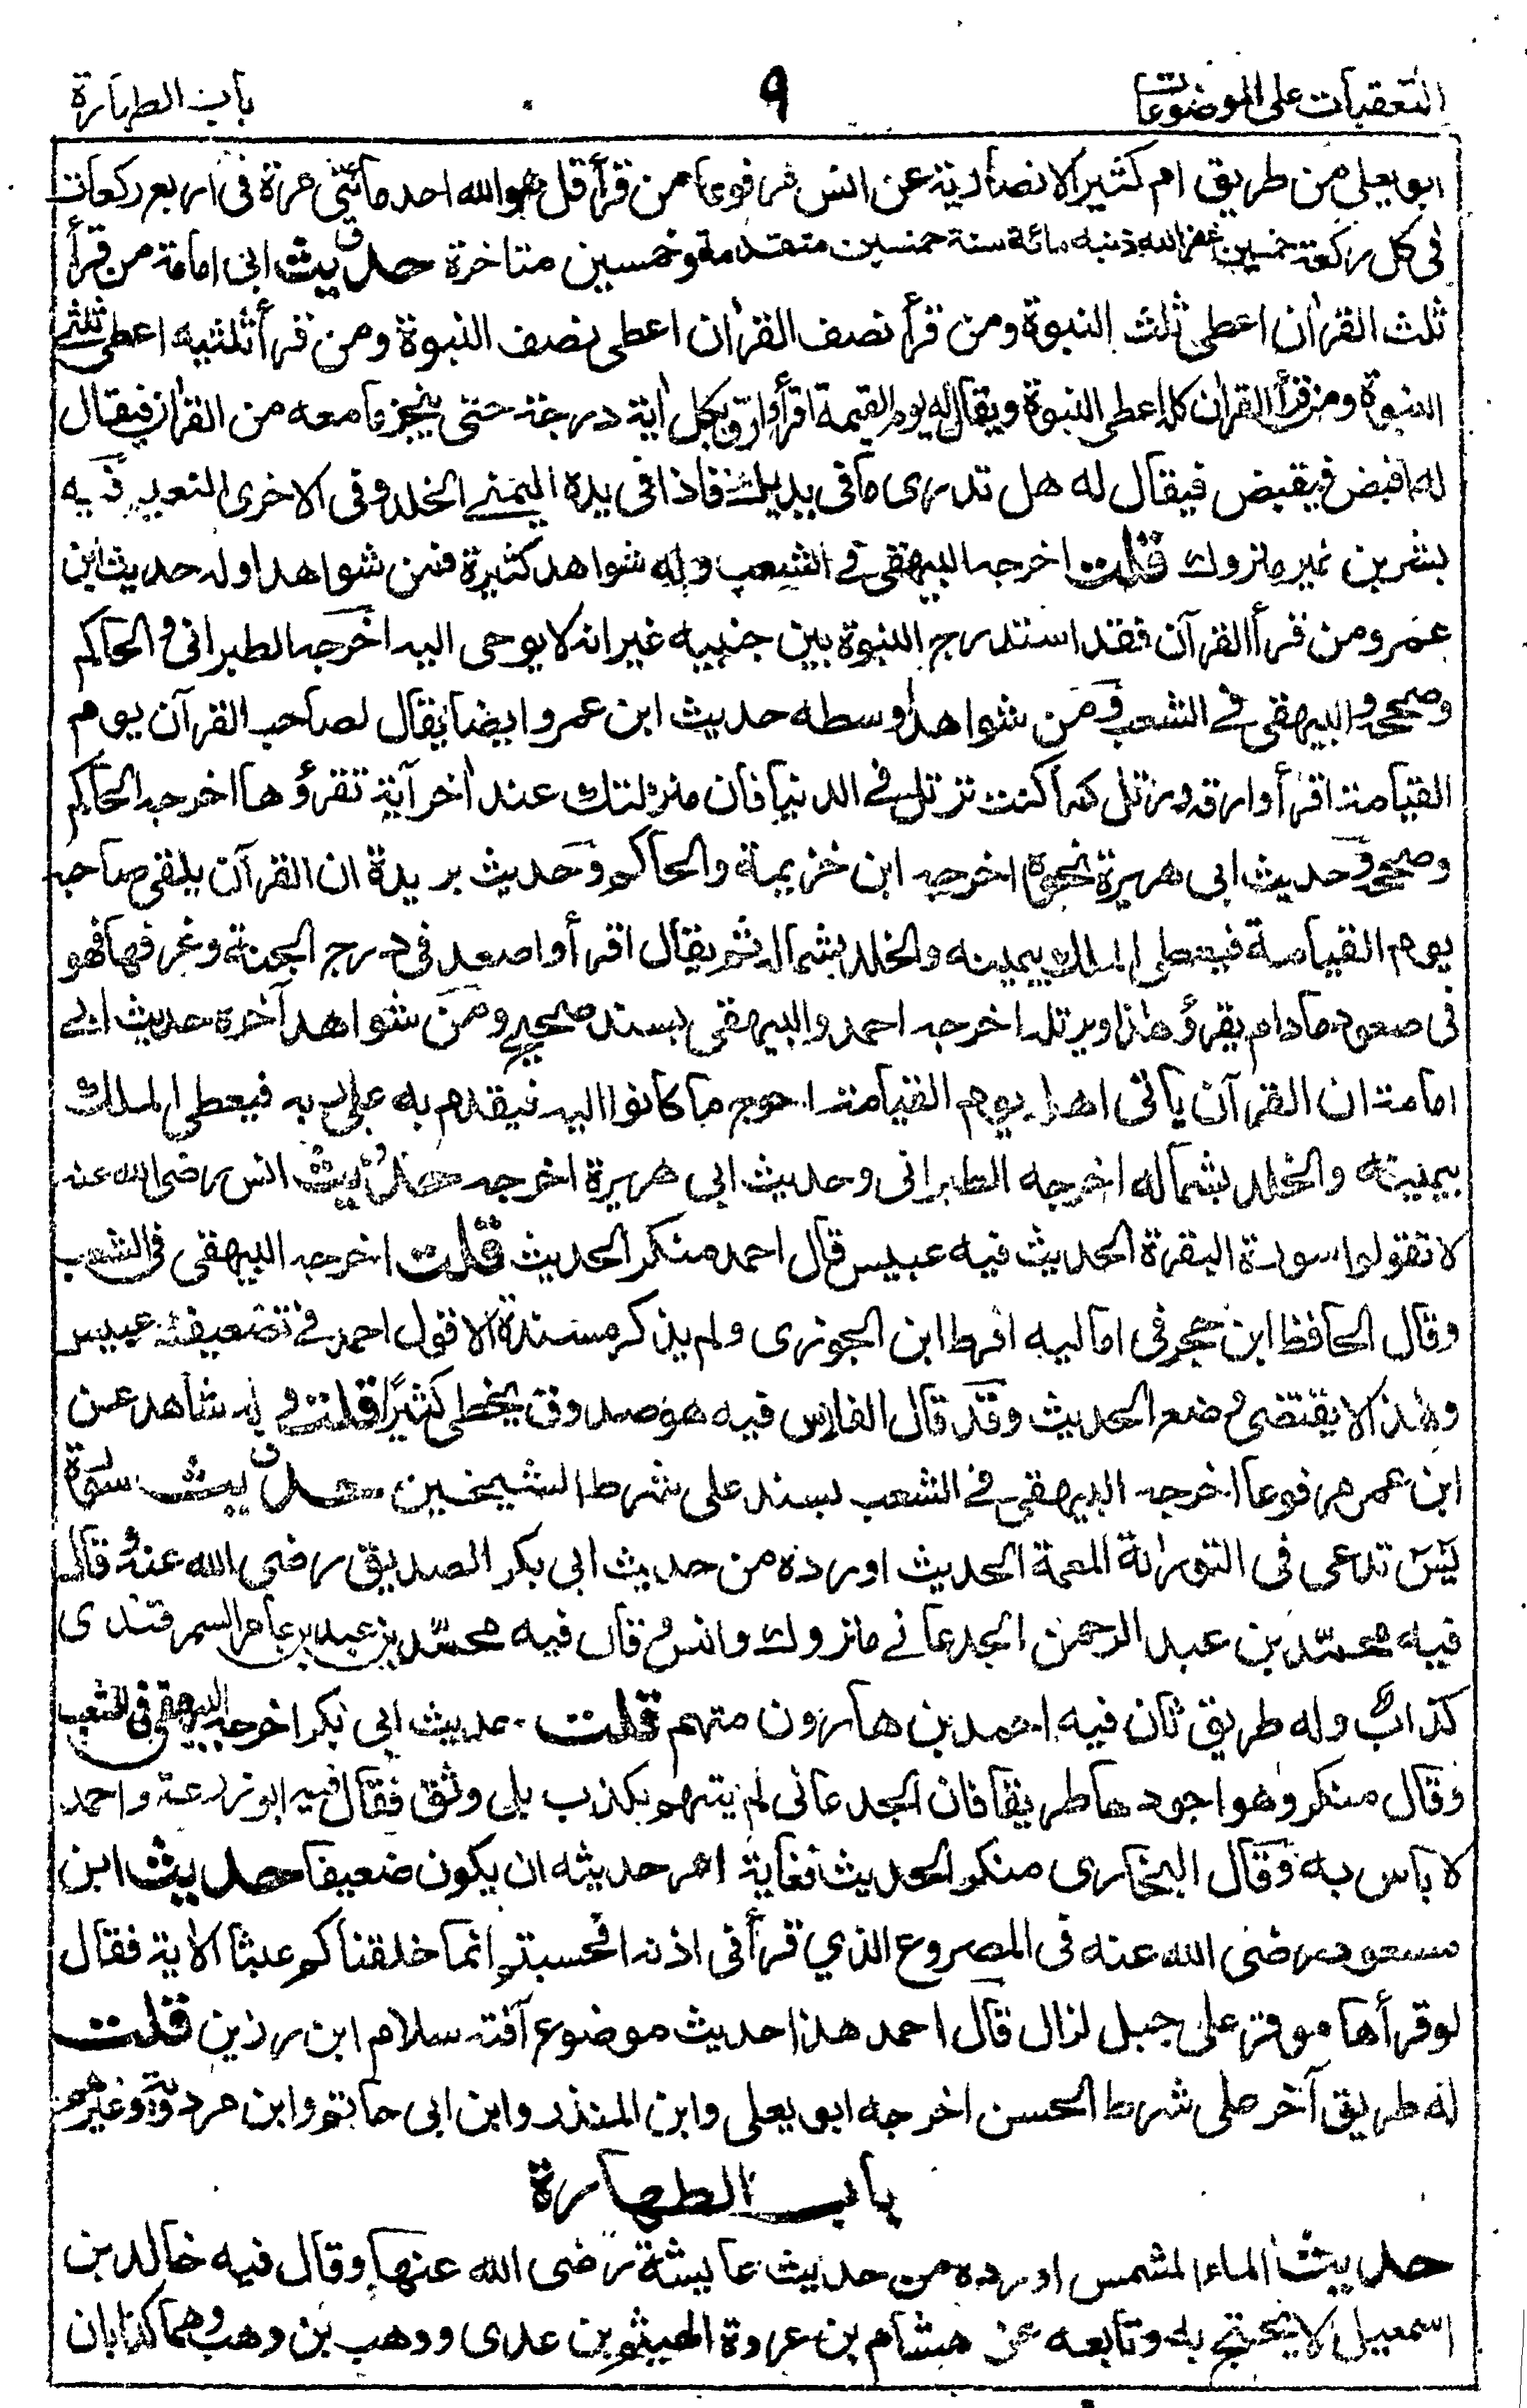 التعقبات على الموضوعات
٩
باب الطهارة
ابو يعلى من طريق ام كثير الانصارية عن انس مرفوعا من قرأ قل هو الله احد مائتى مرة فى اربع ركعات
فى كل ركعة خمسين غفر الله ذنبه مائة سنة خمسين متقدمة وخمسين متاخرة حديث ابى امامة من قرأ
ثلث القران اعطى ثلث النبوة ومن قرأ نصف القران اعطى نصف النبوة ومن قرأ ثلثيه اعطى ثلثے
النبوة ومن قرأ القران كله اعطى النبوة ويقال له يوم القيمة اقرأ وارق بكل اية درجة حتى ينجز ما معه من القران فيقال
له اقبض فيقبض فيقال له هل تدرى ما فى يديك فاذا فى يده اليمنے الخلد وفى الاخرى النعيم فيه
بشر بن نمير متروك قلت اخرجه البيهقى فے الشعب وله شواهد كثيرة فمن شواهد اوله حديث ابن
عمرو من قرأ القرآن فقد استدرج النبوة بين جنبيه غير انه لا يوحى اليه اخرجه الطبرانى والحاكم
وصححه والبيهقى فے الشعب ومن شواهد وسطه حديث ابن عمرو ايضا يقال لصاحب القرآن يوم
القيامة اقرأ وارق ورتل كما كنت ترتل فے الدنيا فان منزلتك عند اخر آية تقرؤها اخرجه الحاكم
وصححه وحديث ابى هريرة نحوه اخرجه ابن خزيمة والحاكم وحديث بريدة ان القرآن يلقى صاحبه
يوم القيامة فيعطى الملك بيمينه والخلد بشماله ثم يقال اقرأ واصعد فى درج الجنة وغرفها فهو
فى صعود ما دام يقرؤ هذا ويرتله اخرجه احمد والبيهقى بسند صحيح ومن شواهد آخره حديث ابے
امامة ان القرآن ياتى اهله يوم القيامة احوج ما كانوا اليه فيقدم به على ربه فيعطى الملك
بيمينه والخلد بشماله اخرجه الطبرانى وحديث ابى هريرة اخرجه حديث انس رضى الله عنه
لا تقولوا سورة البقرة الحديث فيه عبيس قال احمد منكر الحديث قلت اخرجه البيهقى فى الشعب
وقال الحافظ ابن حجر فى اماليه افرط ابن الجوزى ولم يذكر مستنده الا قول احمد فے تضعيفه عبيس
وهذا لا يقتضى وضع الحديث وقد قال الفلاس فيه هو صدوق يخطى كثيرًا قلت و له شاهد عن
ابن عمر مرفوعا اخرجه البيهقى فے الشعب بسند على شرط الشيخين حديث سورة
يٰسٓ تدعى فى التوراة المعمة الحديث اورده من حديث ابى بكر الصديق رضى الله عنه قال
فيه محمّد بن عبد الرحمن الجدعانے متروك وانس و قال فيه محمّد بن عبد بن عامر السمرقندى
كذاب وله طريق ثان فيه احمد بن هارون متهم قلت حديث ابى بكر اخرجه البيهقى فى الشعب
وقال منكر وهو اجودها طريقا فان الجدعانى لم يتهم بكذب بلى وثق فقال فيه ابو زرعة واحمد
لا باس به وقال البخارى منكر الحديث فغاية امر حديثه ان يكون ضعيفا حديث ابن
مسعود رضى الله عنه فى المصروع الذي قرأ فى اذنه افحسبتم انما خلقناكم عبثا الاية فقال
لو قرأها موقن على جبل لزال قال احمد هذا حديث موضوع آفته سلام ابن رزين قلت
له طريق آخر على شرط الحسن اخرجه ابو يعلى وابن المنذر وابن ابى حاتم وابن مردويه وغيرهم
باب الطهارة
حديث الماء المشمس اورده من حديث عايشة رضى الله عنها وقال فيه خالد بن
اسمعيل لا يحتج به وتابعه عن هشام بن عروة الهيثم بن عدى ووهب بن وهب وهما كذابان